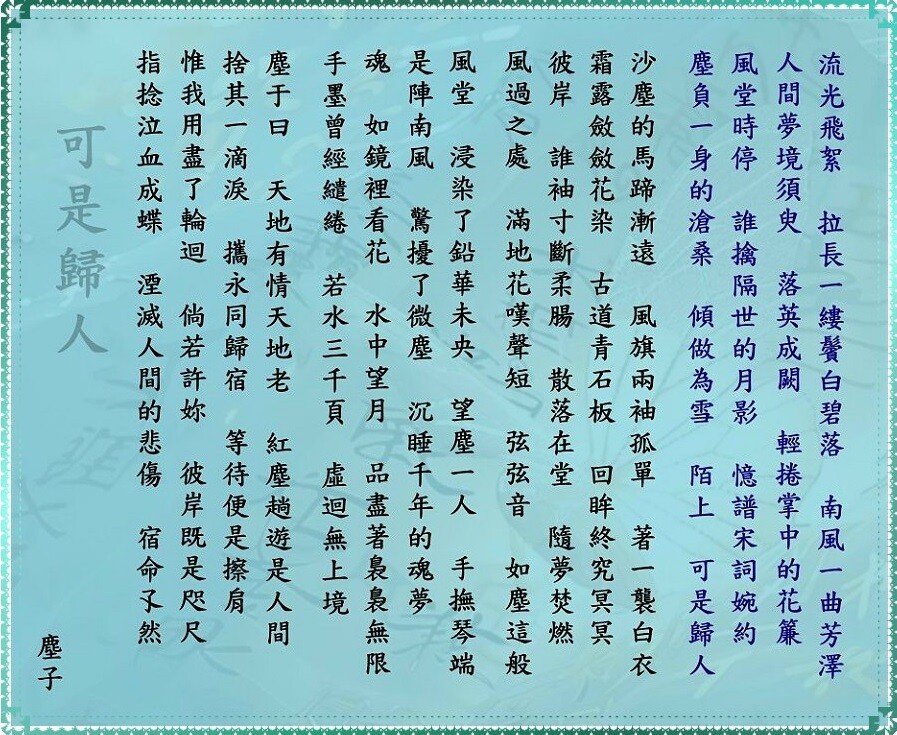 流光飛絮　拉長一縷鬢白碧落　南風一曲芳澤
人間夢境須臾　落英成闕　輕捲掌中的花簾
風堂時停　誰擒隔世的月影　憶譜宋詞婉約
塵負一身的滄桑　傾做為雪　陌上　可是歸人
沙塵的馬蹄漸遠　風旗兩袖孤單　著一襲白衣
霜露斂斂花染　古道青石板　回眸終究冥冥
彼岸　誰袖寸斷柔腸　散落在堂　隨夢焚燃
風過之處　滿地花嘆聲短　弦弦音　如塵這般
風堂　浸染了鉛華未央　望塵一人　手撫琴端
是陣南風　驚擾了微塵　沉睡千年的魂夢
魂　如鏡裡看花　水中望月　品盡著裊裊無限
手墨曾經繾綣　若水三千頁　虛迴無上境
塵于曰　天地有情天地老　紅塵趟遊是人間
捨其一滴淚　攜永同歸宿　等待便是擦肩
惟我用盡了輪迴　倘若許妳　彼岸既是咫尺
指捻泣血成蝶　湮滅人間的悲傷　宿命孓然
可是歸人
塵子